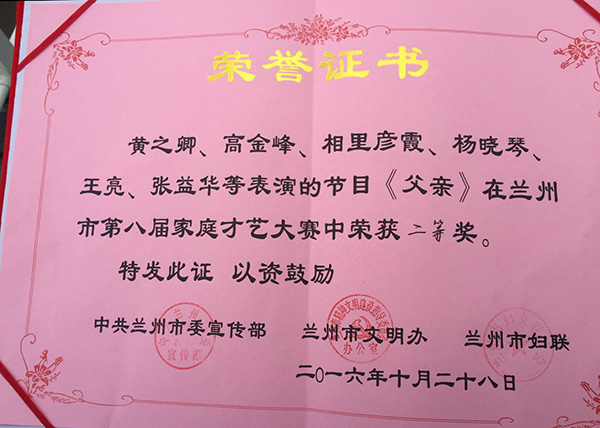 荣誉证书
黄之卿、高金峰、相里彦霞、杨晓琴、
王亮、张益华等表演的节目《父亲》在兰州
市第八届家庭才艺大赛中荣获 二等 奖。
特发此证 以资鼓励
中共兰州市委宣传部 兰州市文明办 兰州市妇联
宣传部 办公室
二〇一六年十月二十八日